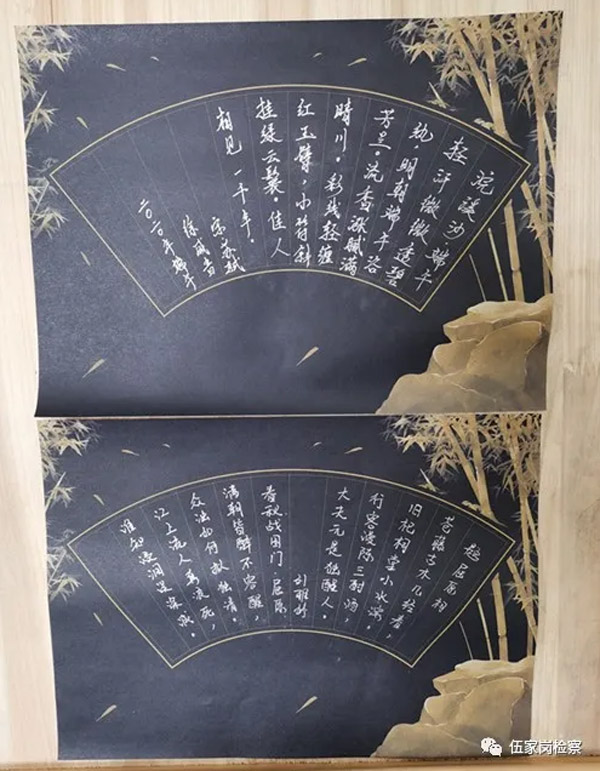 浣溪沙 端午
轻汗微微透碧
纨，明朝端午浴
芳兰。流香涨腻满
晴川。彩线轻缠
红玉臂，小符斜
挂绿云鬟。佳人
相见一千年。
宋 苏轼
二〇二〇年端午
题屈原祠
苍藤古木几经春，
旧祀祠堂小水滨。
行客漫陈三酎酒，
大夫元是独醒人。
春秋战国门·屈原
满朝皆醉不容醒，
众浊如何敌独清。
江上流人真浪死，
谁知浸润误深诚。
伍家岗检察